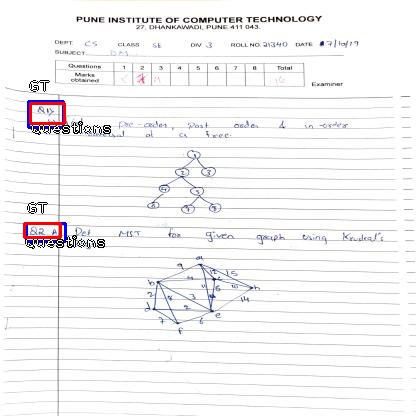 PUNE INSTITUTE OF COMPUTER TECHNOLOGY
27, DHANKAWADI, PUNE 411 043.
DEPT. CS CLASS SE DIV 3 ROLL NO. 21340 DATE 17/10/19
SUBJECT DM
Questions 1 2 3 4 5 6 7 8 Total
Marks obtained
Examiner
GT
Questions
pre-order, Post order & in-order
of a tree.
1
2 3
4 5
6 7 8
GT
Q2 A Det MST for given graph using Krudral's
Questions
a
9 12 15
b c h
2 8 3 10 14
d 2 e
7 6
f